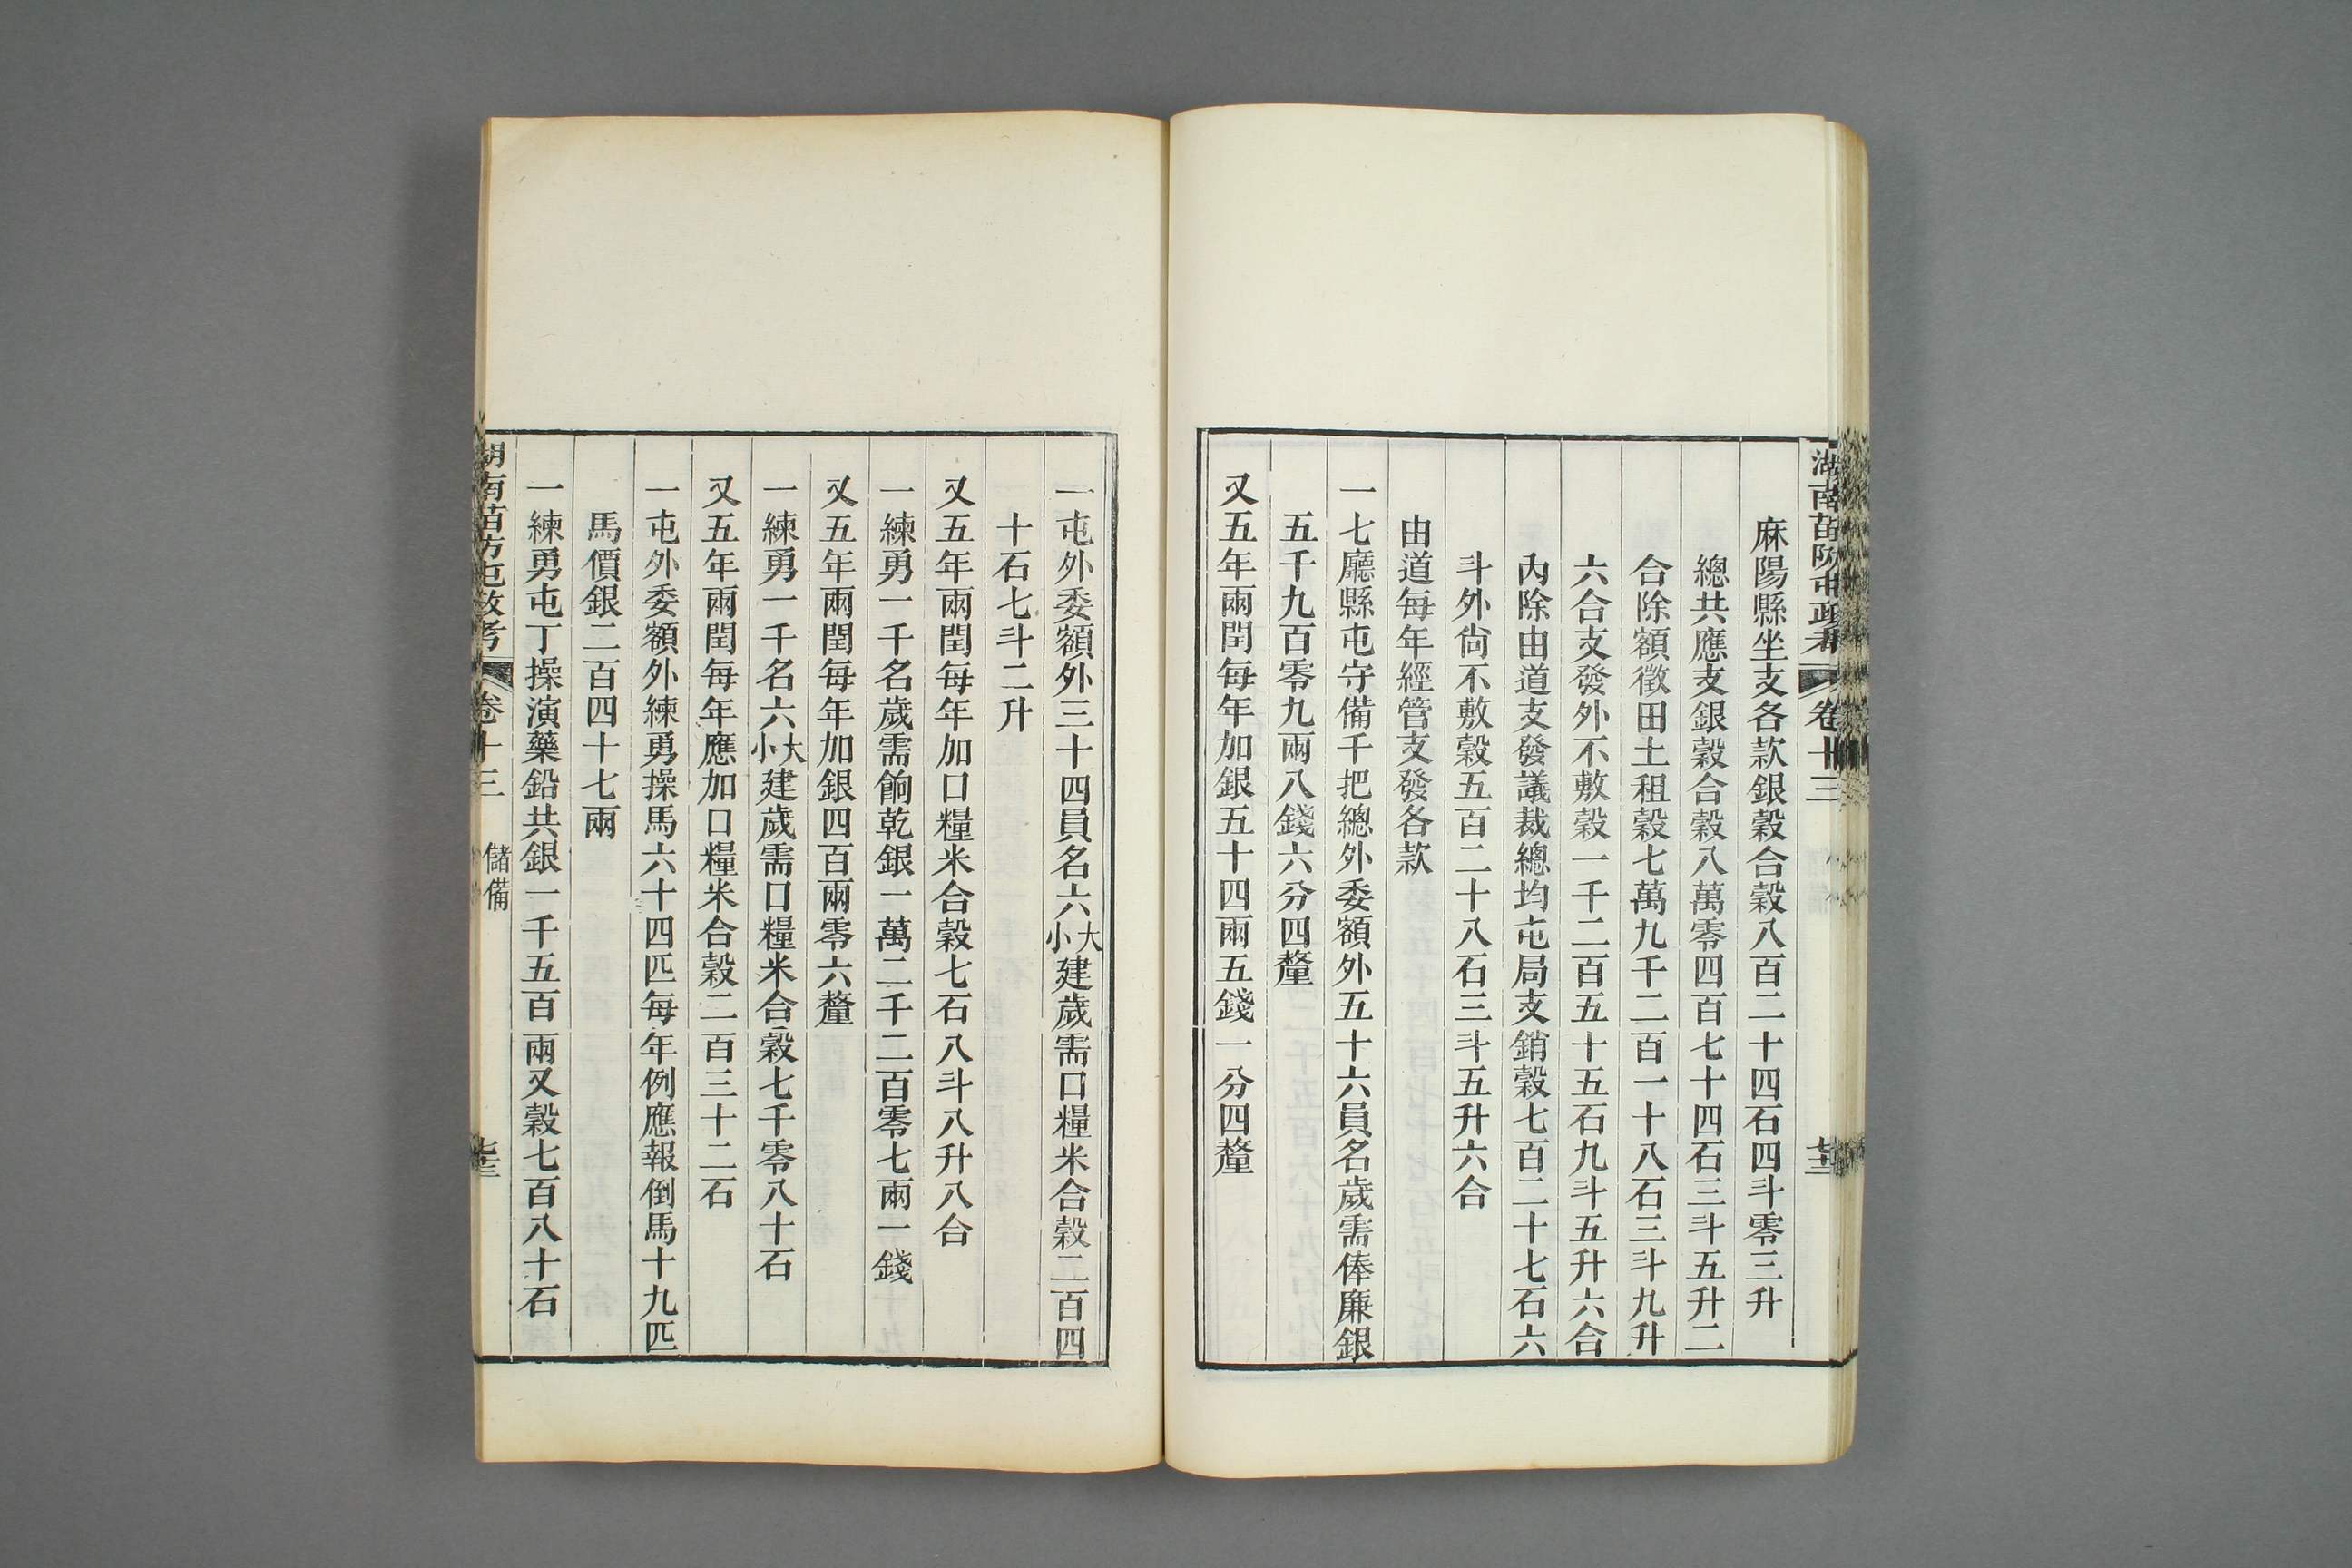 湖南苗防屯政考 卷十三
麻陽縣坐支各款銀穀合穀八百二十四石四斗零三升
總共應支銀穀合穀八萬零四百七十四石三斗五升二
合除額徵田土租穀七萬九千二百一十八石三斗九升
六合支發外不敷穀一千二百五十五石九斗五升六合
內除由道支發議裁總均屯局支銷穀七百二十七石六
斗外尙不敷穀五百二十八石三斗五升六合
由道每年經管支發各款
一七廳縣屯守備千把總外委額外五十六員名歲需俸廉銀
五千九百零九兩八錢六分四釐
又五年兩閏每年加銀五十四兩五錢一分四釐
一屯外委額外三十四員名六大小建歲需口糧米合穀二百四
十石七斗二升
又五年兩閏每年加口糧米合穀七石八斗八升八合
一練勇一千名歲需餉乾銀一萬二千二百零七兩一錢
又五年兩閏每年加銀四百兩零六釐
一練勇一千名六大小建歲需口糧米合穀七千零八十石
又五年兩閏每年應加口糧米合穀二百三十二石
一屯外委額外練勇操馬六十四匹每年例應報倒馬十九匹
馬價銀二百四十七兩
一練勇屯丁操演藥鉛共銀一千五百兩又穀七百八十石
湖南苗防屯政考 卷十三 儲備